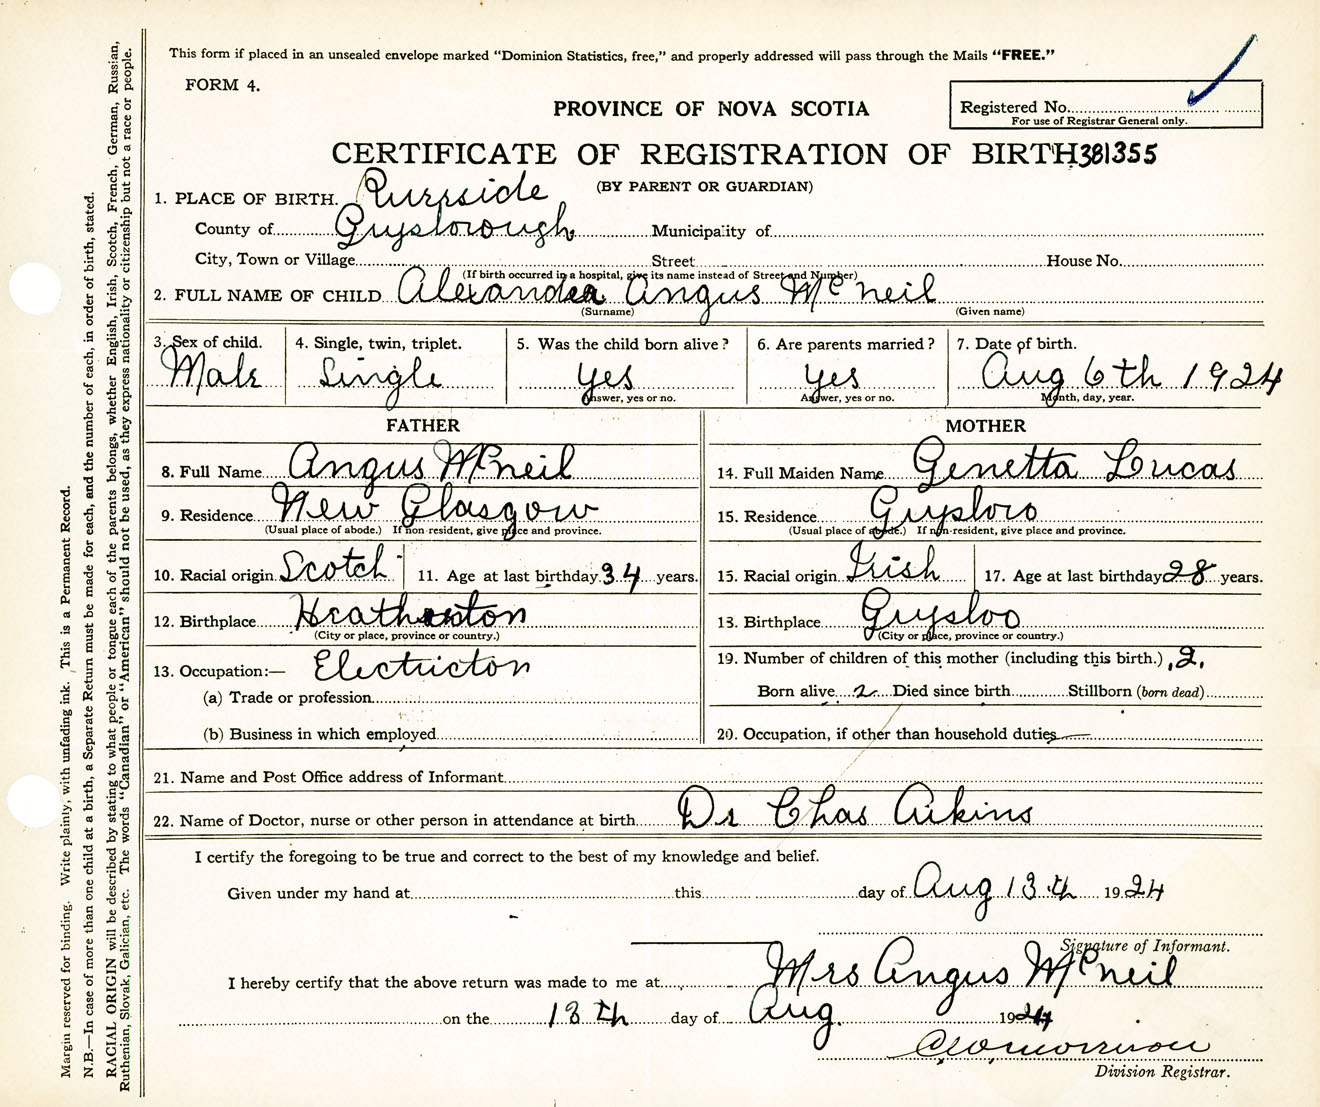 This form if placed in an unsealed envelope marked "Dominion Statistics, free," and properly addressed will pass through the Mails "FREE."
FORM 4.
Registered No.
For use of Registrar General only.
PROVINCE OF NOVA SCOTIA
CERTIFICATE OF REGISTRATION OF BIRTH 381355
(BY PARENT OR GUARDIAN)
1. PLACE OF BIRTH.
County of Guysborough Municipality of
City, Town or Village Street House No.
(If birth occurred in a hospital, give its name instead of Street and Number)
2. FULL NAME OF CHILD Alexander Angus McNeil
(Surname) (Given name)
3. Sex of child. 4. Single, twin, triplet. 5. Was the child born alive? 6. Are parents married? 7. Date of birth.
Male Single yes yes Aug 6th 1924
Answer, yes or no. Answer, yes or no. Month, day, year.
FATHER
8. Full Name Angus McNeil
9. Residence New Glasgow
(Usual place of abode.) If non-resident, give place and province.
10. Racial origin Scotch 11. Age at last birthday 34 years.
12. Birthplace Heatherton
(City or place, province or country.)
13. Occupation:— Electricton
(a) Trade or profession
(b) Business in which employed
MOTHER
14. Full Maiden Name Genetta Lucas
15. Residence Guysboro
(Usual place of abode.) If non-resident, give place and province.
15. Racial origin Irish 17. Age at last birthday 28 years.
13. Birthplace Guysboo
(City or place, province or country.)
19. Number of children of this mother (including this birth.) 2.
Born alive 2 Died since birth Stillborn (born dead)
20. Occupation, if other than household duties
21. Name and Post Office address of Informant
22. Name of Doctor, nurse or other person in attendance at birth Dr Chas Aikins
I certify the foregoing to be true and correct to the best of my knowledge and belief.
Given under my hand at this day of Aug 13th 1924
Signature of Informant.
Mrs Angus McNeil
I hereby certify that the above return was made to me at
on the 13th day of Aug. 1924
Morrison
Division Registrar.
Margin reserved for binding. Write plainly, with unfading ink. This is a Permanent Record.
N.B.—In case of more than one child at a birth, a Separate Return must be made for each, and the number of each, in order of birth, stated.
RACIAL ORIGIN will be described by stating to what people or tongue each of the parents belongs, whether English, Irish, Scotch, French, German, Russian,
Ruthenian, Slovak, Galician, etc. The words "Canadian" or "American" should not be used, as they express nationality or citizenship but not a race or people.